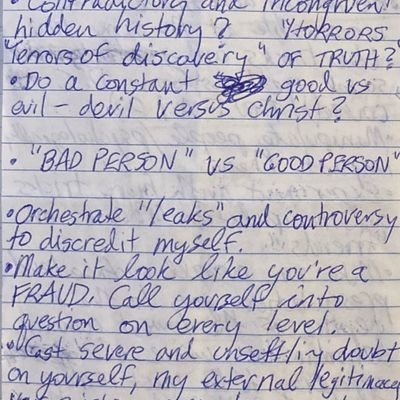 • Contradictory and incongruent
hidden history? "HORRORS
"terrors of discovery" OF TRUTH?"
• Do a constant good vs
evil - devil versus Christ?
• "BAD PERSON" vs "GOOD PERSON"
• Orchestrate "leaks" and controversy
to discredit myself.
• Make it look like you're a
FRAUD. Call yourself into
question on every level.
• Cast severe and unsettling doubt
on yourself, my external legitimacy